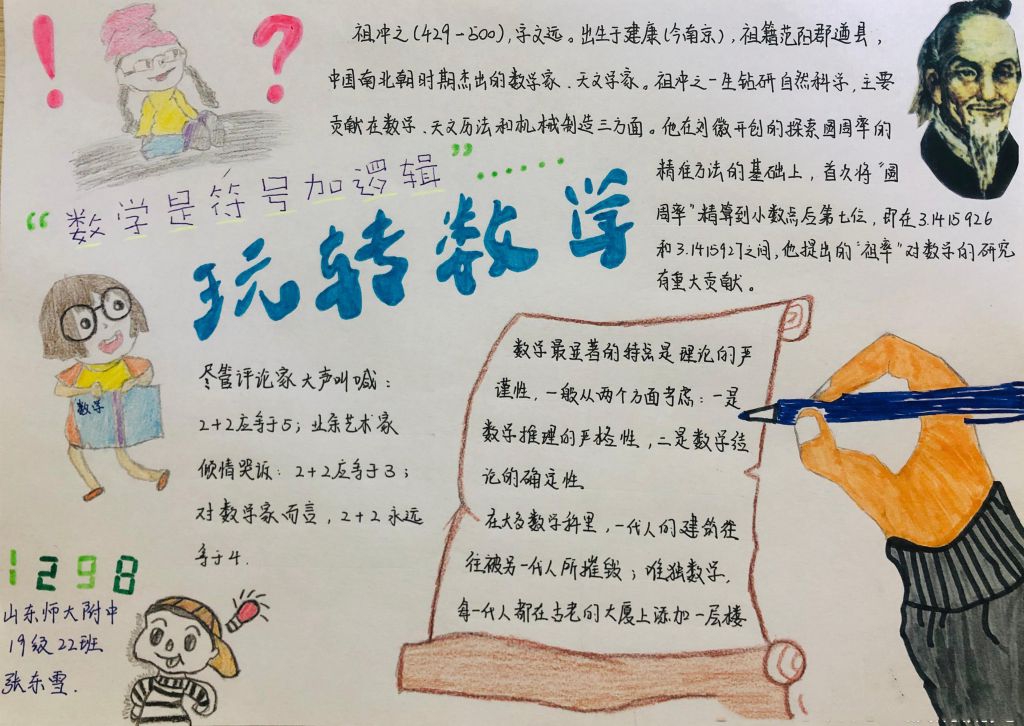 祖冲之(429-500),字文远。出生于建康(今南京),祖籍范阳郡遒县,
中国南北朝时期杰出的数学家、天文学家。祖冲之一生钻研自然科学,主要
贡献在数学、天文历法和机械制造三方面。他在刘徽开创的探索圆周率的
精准方法的基础上,首次将“圆
周率”精算到小数点后第七位,即在3.1415926
和3.1415927之间,他提出的“祖率”对数学的研究
有重大贡献。
“数学是符号加逻辑”……
玩转数学
数学
尽管评论家大声叫喊:
2+2应等于5;业余艺术家
倾情哭诉:2+2应等于3;
对数学家而言,2+2永远
等于4.
数学最显著的特点是理论的严
谨性,一般从两个方面考虑:一是
数学推理的严格性,二是数学结
论的确定性
在大多数学科里,一代人的建筑往
往被另一代人所摧毁;唯独数学,
每一代人都在古老的大厦上添加一层楼
1298
山东师大附中
19级22班
张东雪.